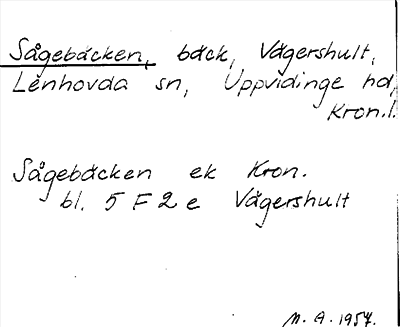 Sågebäcken, bäck, Vägershult,
Lenhovda sn, Uppvidinge hd,
Kron.l.
Sågebäcken ek Kron.
bl. 5 F 2 e Vägershult
M. A. 1957.